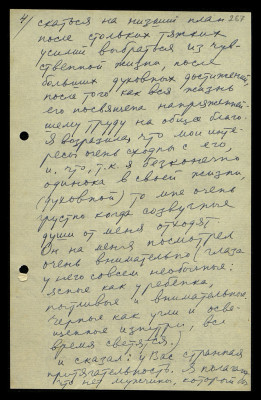 4/
скаться на низший план 257
после стольких тяжких
усилий выбраться из чув-
ственной жизни, после
больших духовных достижений,
после того как вся жизнь
его посвящена напряженней-
шему труду на общее благо.
Я возразила, что мои инте-
ресы очень сходны с его,
и, что, т.к. я бесконечно
одинока в своей жизни,
(духовной) то мне очень
грустно когда созвучные
души от меня отходят.
Он на меня посмотрел
очень внимательно (глаза
у него совсем необычные:
ясные как у ребенка,
пытливые и внимательные.
Черные как угли и осве-
щенные изнутри, всё
время светятся.)
и сказал: "у Вас странная
притягательность. Я полагаю
что нет мужчины, который бы